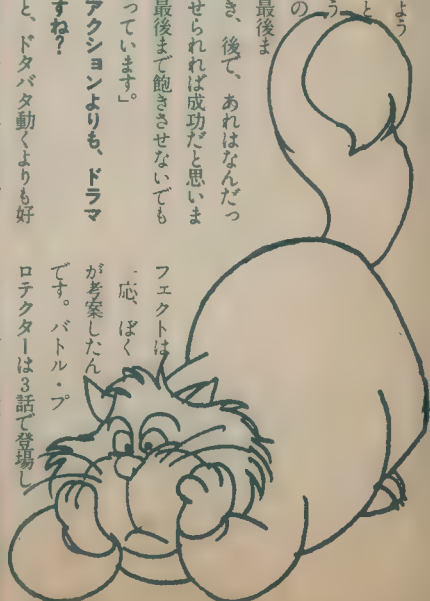 よう
と
う
の
最後ま
き、後で、あれはなんだっ
せられれば成功だと思いま
最後まで飽きさせないでも
っています。」
アクションよりも、ドラマ
すね?
と、ドタバタ動くよりも好
フェクトは
一応、ぼく
が考案したん
です。バトル・プ
ロテクターは3話で登場し